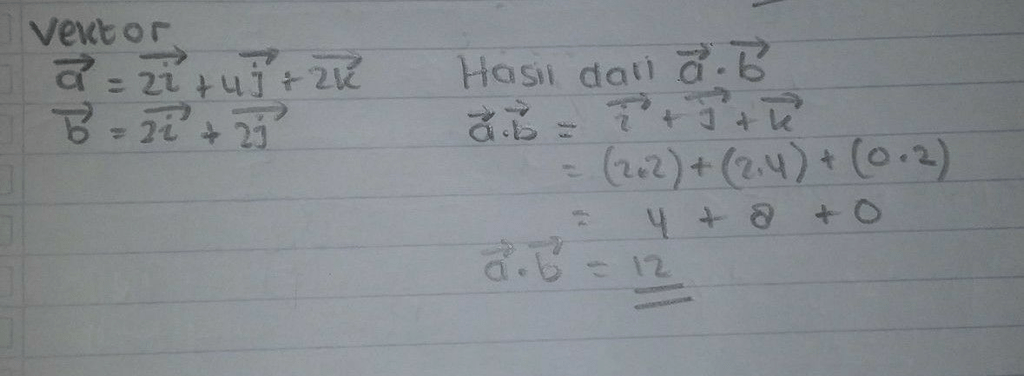 Vektor
a⃗ = 2i⃗ + 4j⃗ + 2k⃗
b⃗ = 2i⃗ + 2j⃗
Hasil dari a⃗ . b⃗
a⃗ . b⃗ = i⃗ + j⃗ + k⃗
= (2.2) + (2.4) + (0.2)
= 4 + 8 + 0
a⃗ . b⃗ = 12